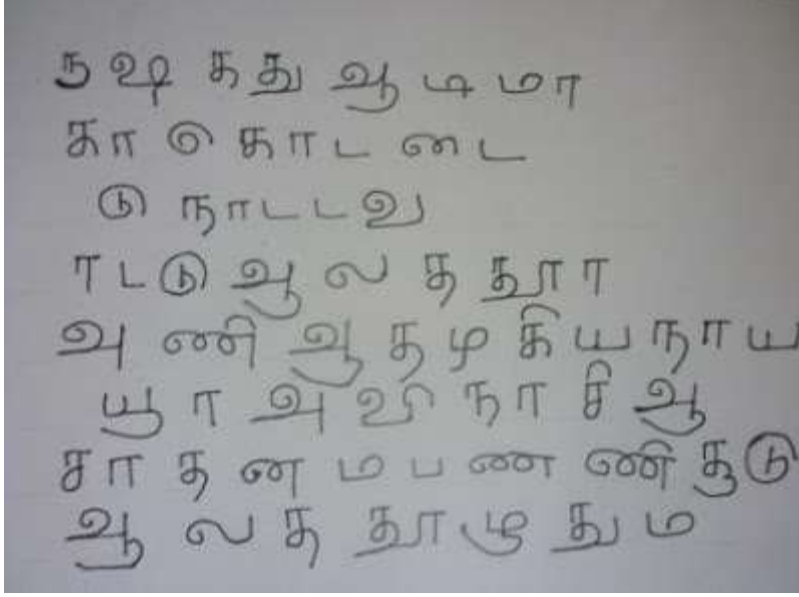 ந ஷ க து ஆ டி மா
கா ெ கா ட டை
டு நாடடவ
ரடடு ஆ ல த தூ ர
அ ணி ஆ த ழ கி ய நா ய
யு ர அ வி நா சி ஆ
சா த ன ம ப ண ணி கு டு
ஆ ல த தூ ழு து ம